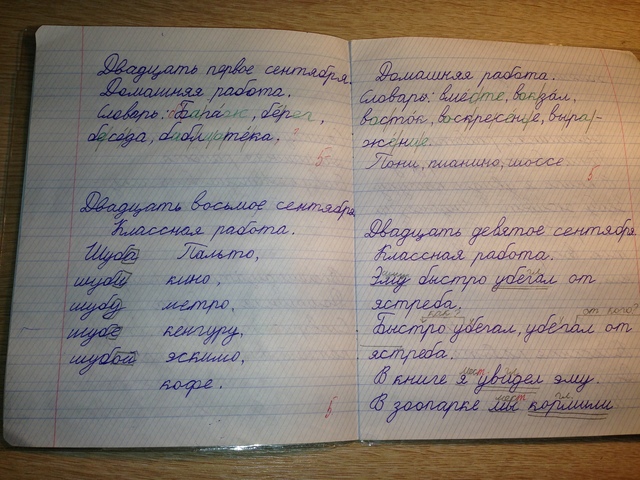 Двадцать первое сентября.
Домашняя работа.
Словарь: Багаж, берег,
беседа, библиотека.
5-
Двадцать восьмое сентября
Классная работа.
Шуба Пальто,
шубы кино,
шубу метро,
шубе кенгуру,
шубой эскимо,
кофе.
5
Домашняя работа.
Словарь: вместе, вокзал,
восток, воскресенье, выра-
жение.
Пони, пианино, шоссе.
5
Двадцать девятое сентября
Классная работа.
Эму быстро убегал от
ястреба.
как? от кого?
Быстро убегал, убегал от
ястреба.
мест. гл.
В книге я увидел эму.
мест гл.
В зоопарке мы кормили